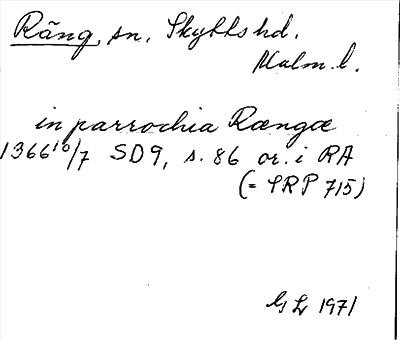 Räng sn. Skytts hd.
Malm. l.
in parrochia Rængæ
1366 10/7 SD9, s. 86 or. i RA
(= SRP 715)
GL 1971